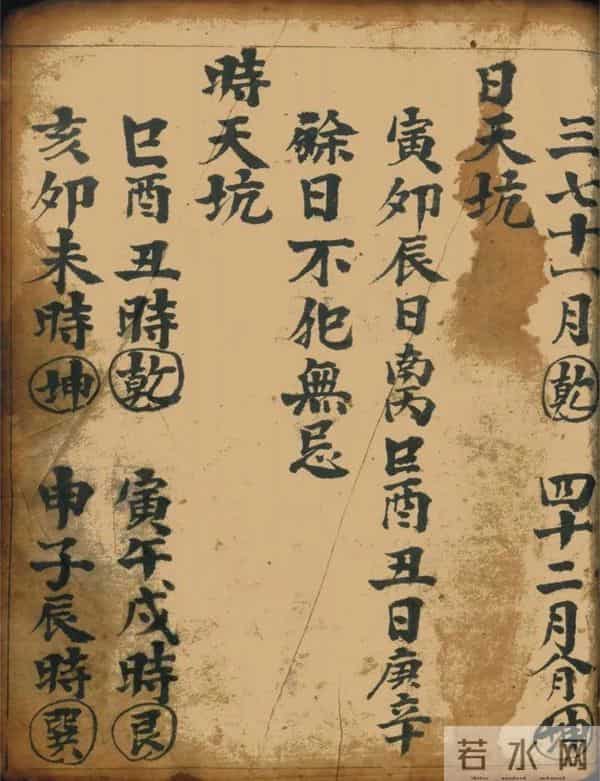 三七十一月乾 四十二月八月坤
日天坑
寅卯辰日南丙巳酉丑日庚辛
餘日不犯無忌
時天坑
巳酉丑時乾 寅午戌時艮
亥卯未時坤 申子辰時巽
若水网